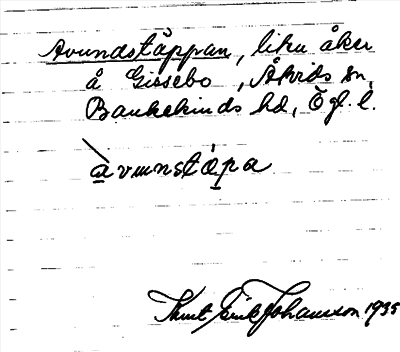 Avundstäppan, liten åker
å Gissebo, Åtvids sn,
Bankekinds hd, Ögl. l.
àvunstǽpa
Knut Erik Johansson 1935